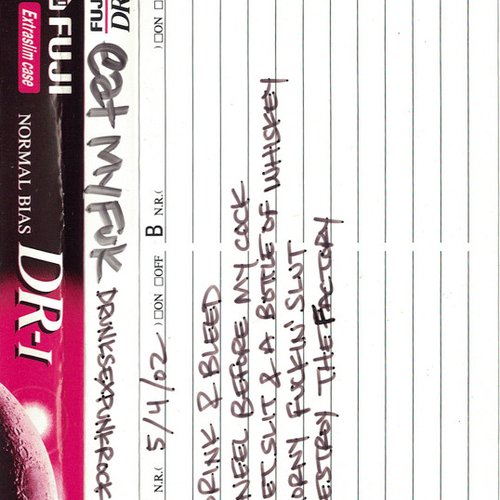 FUJI
Extraslim case
NORMAL BIAS
DR-I
FUJI
DR
eat My Fuk
N.R.( )□ON □OFF B N.R.( )□ON
5/4/02
RINK & BLEED
NEEL BEFORE MY COCK
ET SLIT & A BOTTLE OF WHISKEY
ORNY FUCKIN' SLUT
ESTROY THE FACTORY